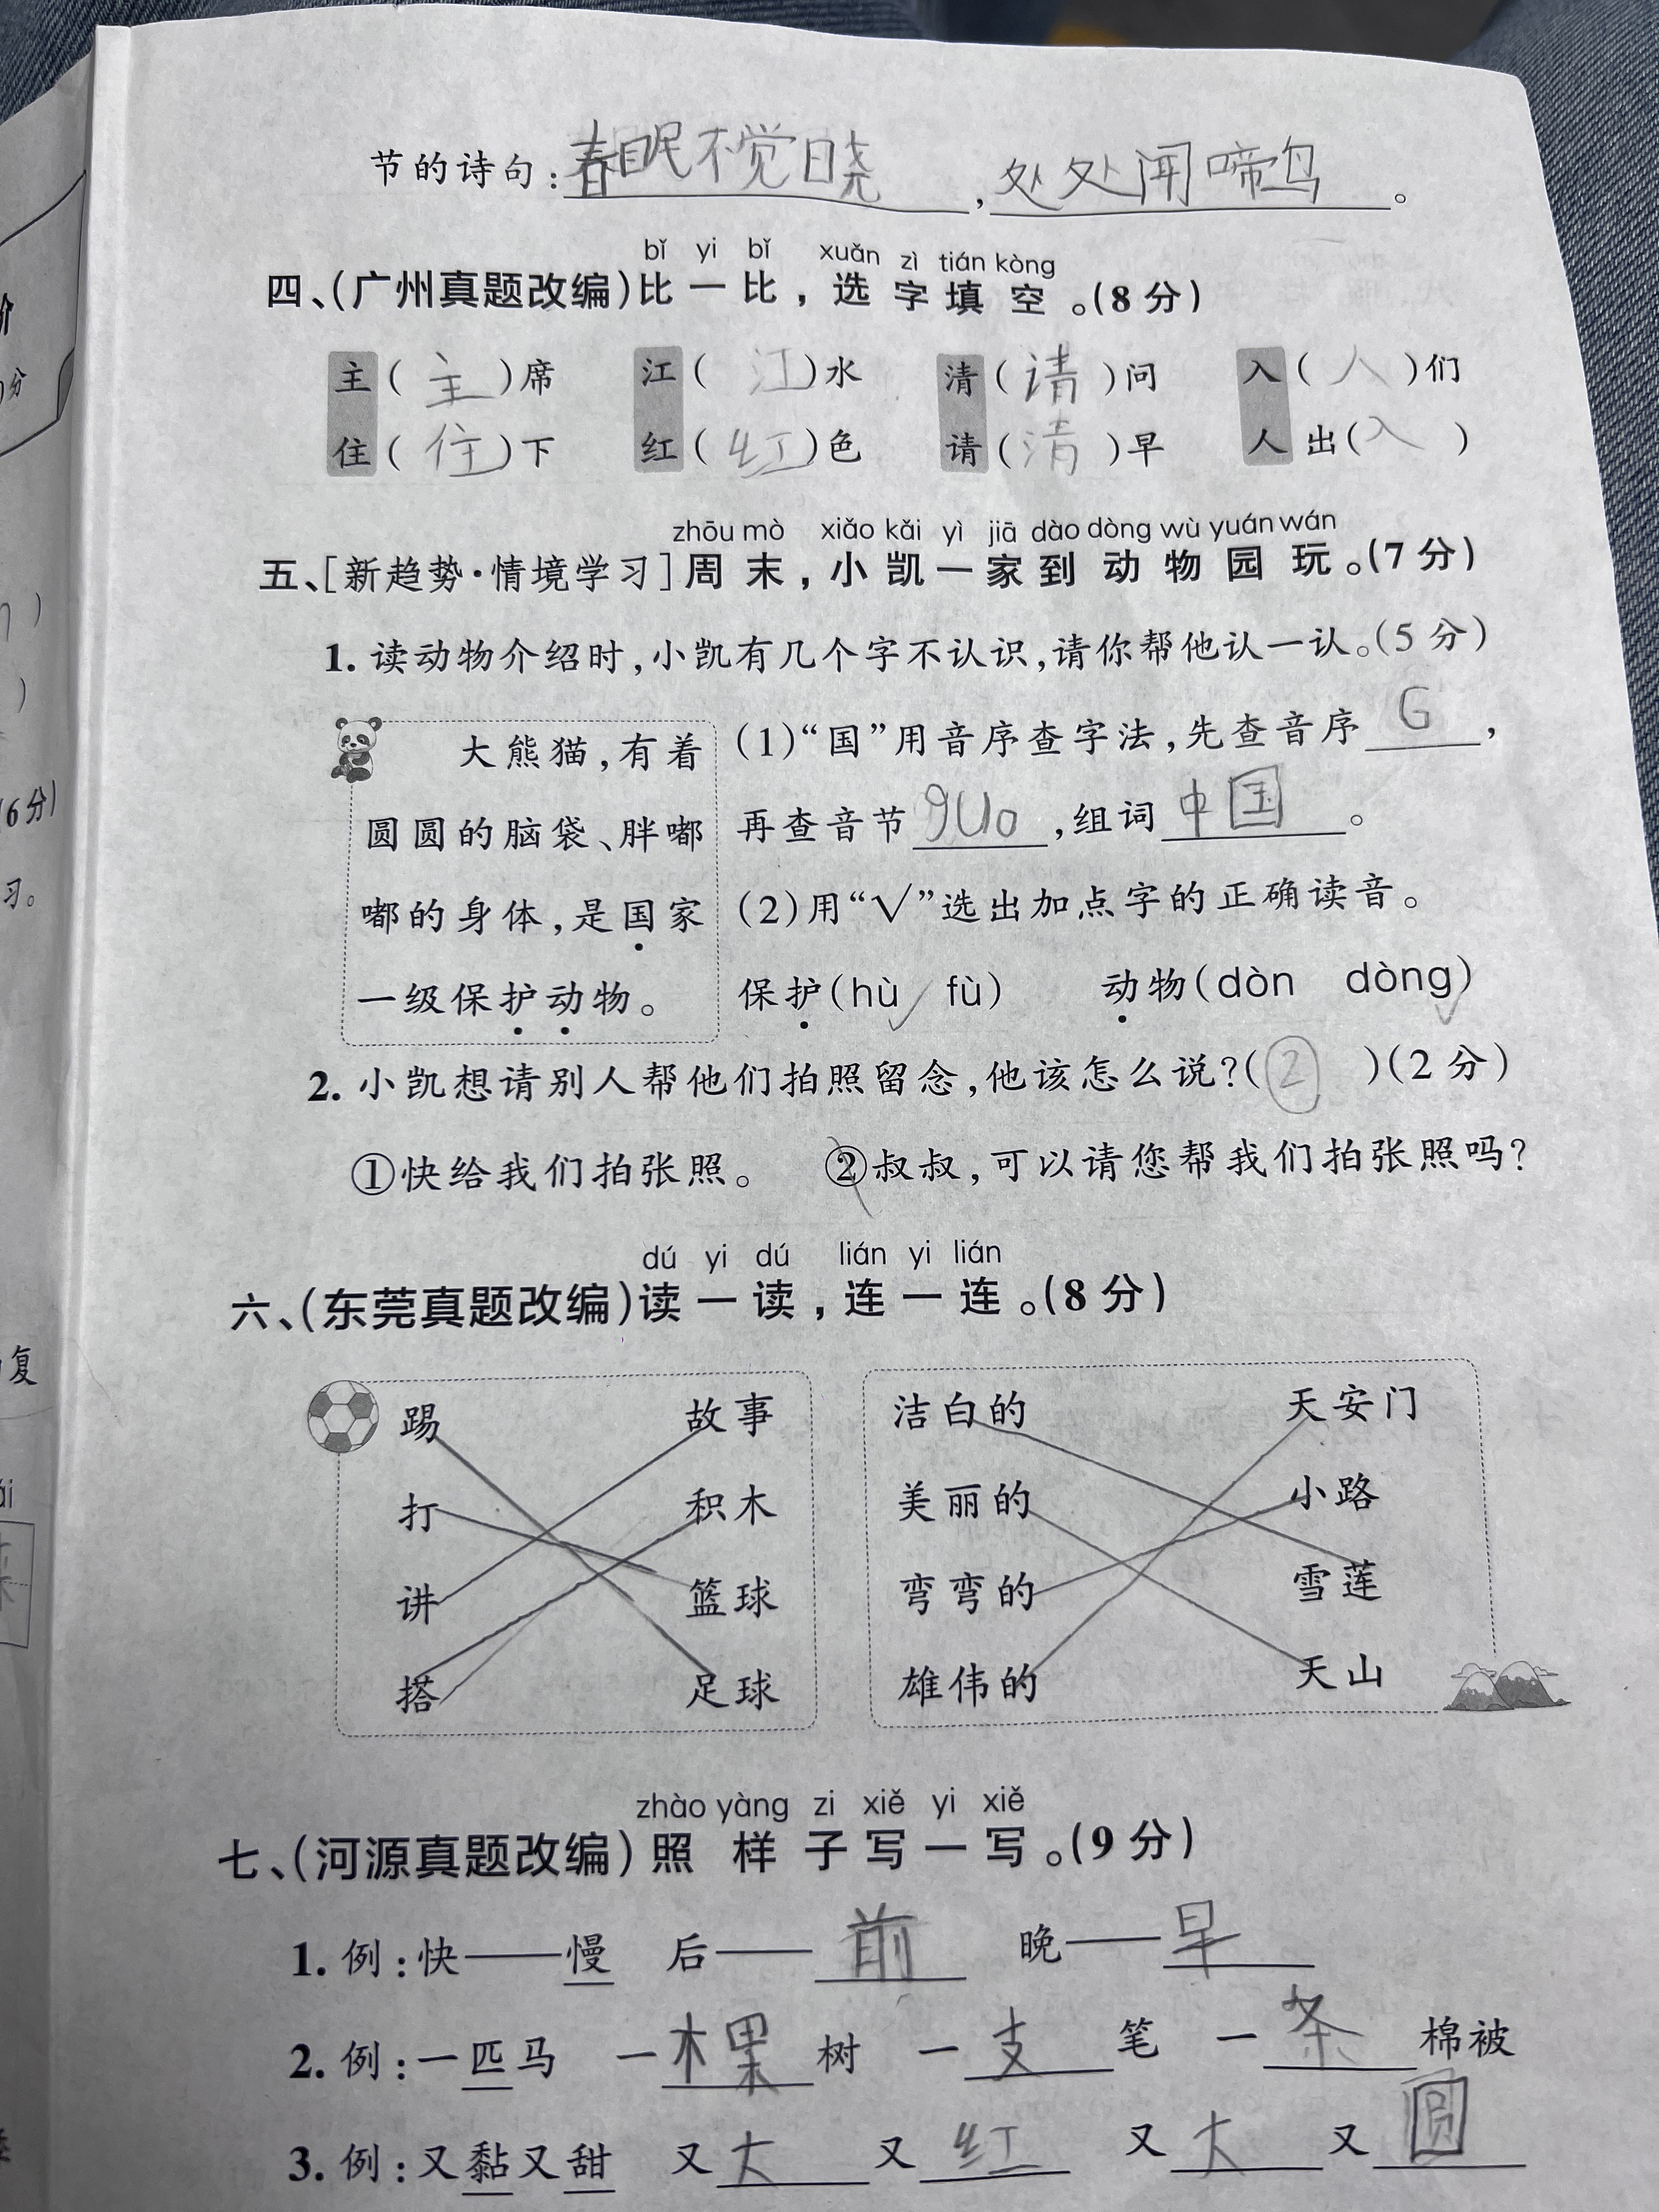 节的诗句:春眠不觉晓,处处闻啼鸟。
bǐ yi bǐ xuǎn zì tián kòng
四、(广州真题改编)比一比,选字填空。(8分)
主(主)席 江(江)水 清(请)问 入(人)们
住(住)下 红(红)色 请(清)早 人 出(入)
zhōu mò xiǎo kǎi yì jiā dào dòng wù yuán wán
五、[新趋势·情境学习]周末,小凯一家到动物园玩。(7分)
1. 读动物介绍时,小凯有几个字不认识,请你帮他认一认。(5分)
大熊猫,有着
圆圆的脑袋、胖嘟
嘟的身体,是国家
一级保护动物。
(1)“国”用音序查字法,先查音序G,
再查音节guo,组词中国。
(2)用“√”选出加点字的正确读音。
保护(hù√ fù) 动物(dòn dòng√)
2. 小凯想请别人帮他们拍照留念,他该怎么说?(②)(2分)
①快给我们拍张照。 ②叔叔,可以请您帮我们拍张照吗?
dú yi dú lián yi lián
六、(东莞真题改编)读一读,连一连。(8分)
踢 故事 洁白的 天安门
打 积木 美丽的 小路
讲 篮球 弯弯的 雪莲
搭 足球 雄伟的 天山
zhào yàng zi xiě yi xiě
七、(河源真题改编)照样子写一写。(9分)
1. 例:快——慢 后——前 晚——早
2. 例:一匹马 一棵树 一支笔 一条棉被
3. 例:又黏又甜 又大又红 又大又圆